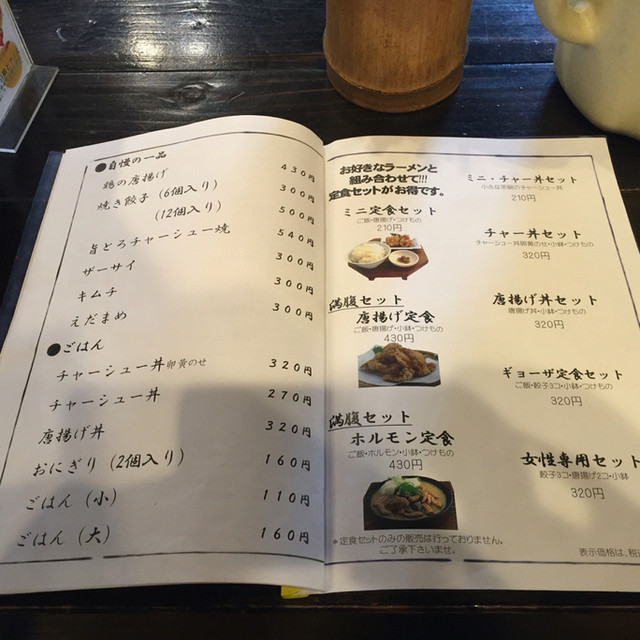 ●自慢の一品
鶏の唐揚げ 430円
焼き餃子(6個入り) 300円
(12個入り) 500円
旨とろチャーシュー焼 540円
ザーサイ 300円
キムチ 300円
えだまめ 300円
●ごはん
チャーシュー丼 卵黄のせ 320円
チャーシュー丼 270円
唐揚げ丼 320円
おにぎり(2個入り) 160円
ごはん(小) 110円
ごはん(大) 160円
お好きなラーメンと
組み合わせて!!!
定食セットがお得です。
ミニ定食セット
ご飯・唐揚げ・つけもの
210円
満腹セット
唐揚げ定食
ご飯・唐揚げ・小鉢・つけもの
430円
満腹セット
ホルモン定食
ご飯・ホルモン・小鉢・つけもの
430円
*定食セットのみの販売は行っておりません。
ご了承下さいませ。
ミニ・チャー丼セット
小さな茶碗のチャーシュー丼
210円
チャー丼セット
チャーシュー丼卵黄のせ・小鉢・つけもの
320円
唐揚げ丼セット
唐揚げ丼・小鉢・つけもの
320円
ギョーザ定食セット
ご飯・餃子3コ・小鉢・つけもの
320円
女性専用セット
餃子3コ・唐揚げ2コ・小鉢
320円
表示価格は、税込